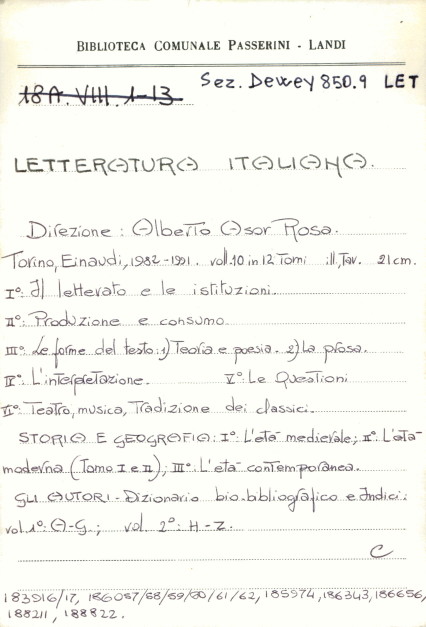 BIBLIOTECA COMUNALE PASSERINI - LANDI
Sez. Dewey 850.9 LET
18A. VIII. 1-13
LETTERATURA ITALIANA.
Direzione: Alberto Asor Rosa.
Torino, Einaudi, 1982-1991. voll. 10 in 12 Tomi ill. Tav. 21 cm.
I°: Il letterato e le istituzioni.
II°: Produzione e consumo.
III°: Le forme del testo: 1) Teoria e poesia. 2) La prosa.
IV°: L'interpretazione. V°: Le Questioni
VI°: Teatro, musica, Tradizione dei classici.
STORIA E GEOGRAFIA: I°: L'età medievale; II°: L'età
moderna (Tomo I e II); III°: L'età contemporanea.
GLI AUTORI - Dizionario bio-bibliografico e Indici:
vol. 1°: A-G.; vol. 2°: H-Z.
C
183916/17, 186057/58/59/60/61/62, 185974, 186343, 186656,
188211, 188822.